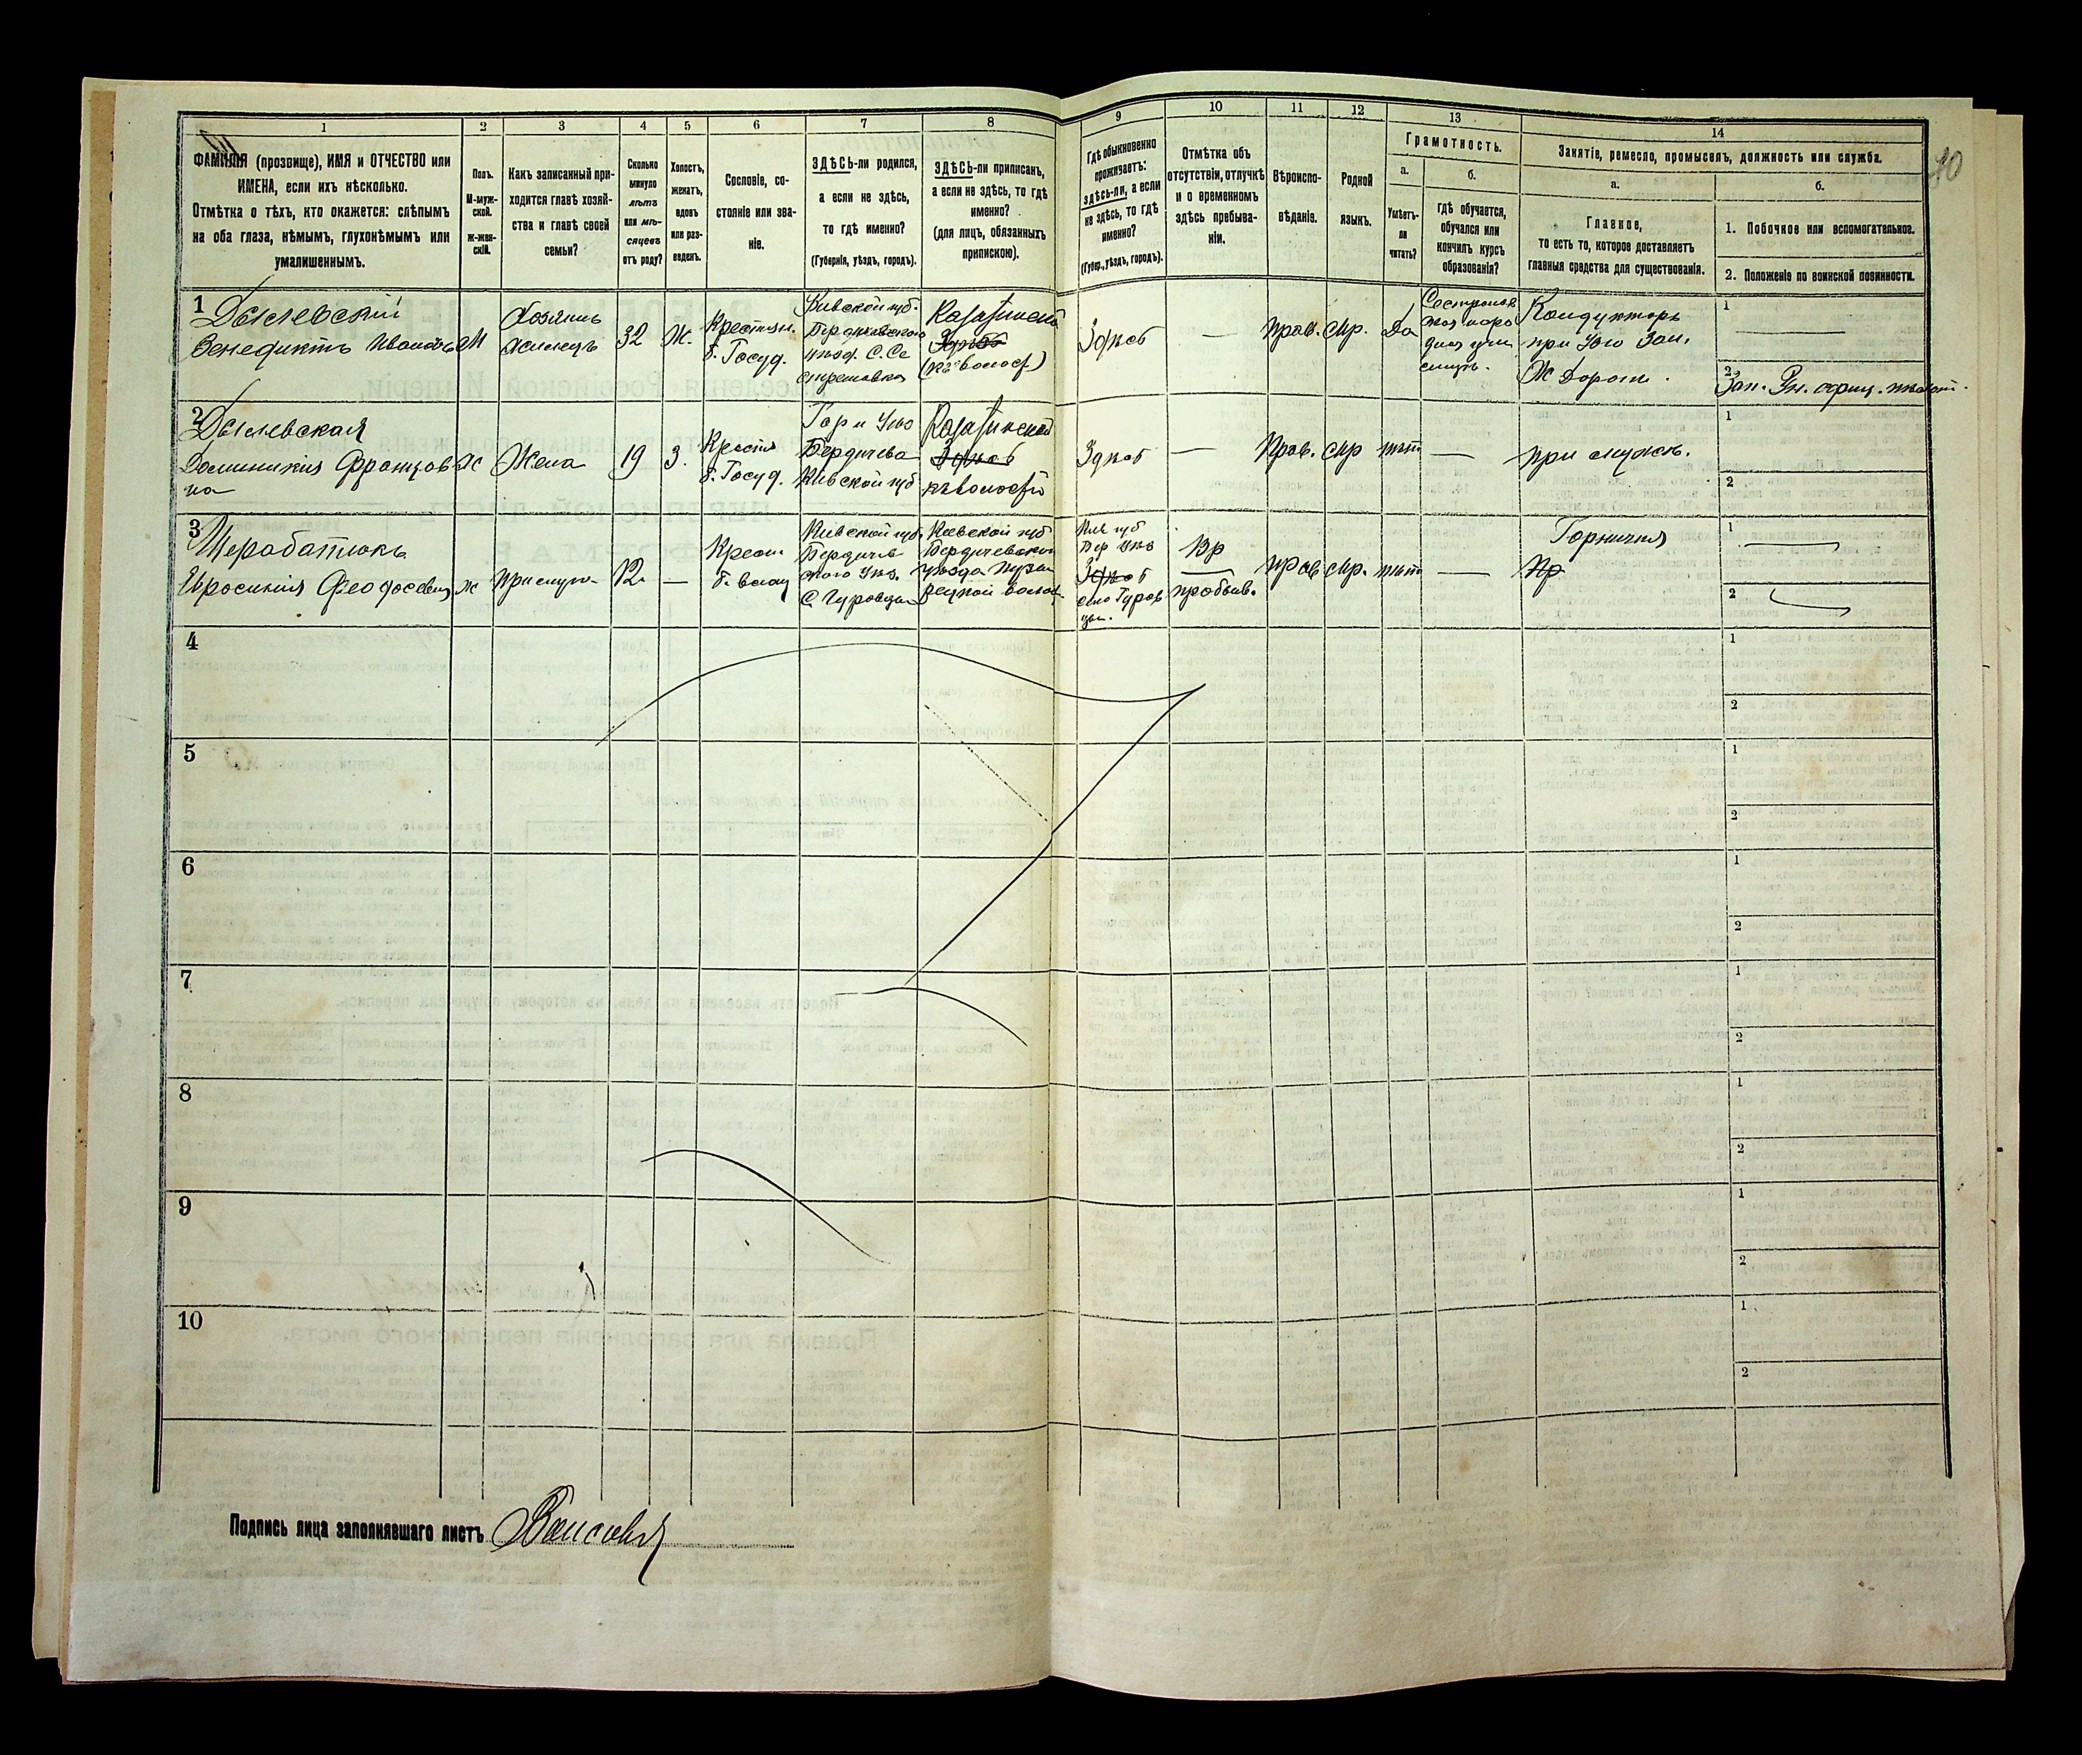 1
2
3
4
5
6
7
8
9
10
11
12
13
14
ФАМИЛІЯ (прозвище), ИМЯ и ОТЧЕСТВО или
ИМЕНА, если ихъ нѣсколько.
Отмѣтка о тѣхъ, кто окажется: слѣпымъ
на оба глаза, нѣмымъ, глухонѣмымъ или
умалишеннымъ.
Полъ.
М-муж-
ской.
Ж-жен-
скій.
Какъ записанный при-
ходится главѣ хозяй-
ства и главѣ своей
семьи?
Сколько
минуло
лѣтъ
или мѣ-
сяцевъ
отъ роду?
Холостъ,
женатъ,
вдовъ
или раз-
веденъ.
Сословіе, со-
стояніе или зва-
ніе.
ЗДѢСЬ-ли родился,
а если не здѣсь,
то гдѣ именно?
(Губернія, уѣздъ, городъ).
ЗДѢСЬ-ли приписанъ,
а если не здѣсь, то гдѣ
именно?
(для лицъ, обязанныхъ
припискою).
Гдѣ обыкновенно
проживаетъ:
здѣсь-ли, а если
не здѣсь, то гдѣ
именно?
(Губер., уѣздъ, городъ).
Отмѣтка объ
отсутствіи, отлучкѣ
и о временномъ
здѣсь пребыва-
ніи.
Вѣроиспо-
вѣданіе.
Родной
языкъ.
Грамотность.
а.
Умѣетъ-
ли
читать?
б.
гдѣ обучается,
обучался или
кончилъ курсъ
образованія?
Занятіе, ремесло, промыселъ, должность или служба.
а.
Главное,
то есть то, которое доставляетъ
главныя средства для существованія.
б.
1. Побочное или вспомогательное.
2. Положеніе по воинской повинности.
1
Венедиктъ Ивановъ
М
Хозяинъ
жилецъ
32
Ж.
Крестьян.
б. Госуд.
Кивской губ.
Бердичевского
уѣзд. С. Се
стреновка
Казатинской
Здѣсь
(къ волост)
Здѣсь
—
Прав.
Мр.
Да
Кондукторъ
при Юго Зап.
Ж Дорогѣ.
1
2
2
Доминикія Францов
на
Ж
Жена
19
З.
Крестья
б. Госуд.
Бердичева
Кивской губ
Казатинской
Здѣсь
къ волости
Здѣсь
—
Прав.
Мр
нѣтъ
—
при мужѣ.
1
2
3
Ж
Прислуга
12
—
Крест
Кивской губ.
Бердичев
ского Уѣз.
Кіевской губ
Бердичевского
уѣзда
Кив губ
Бер Уѣз
Здѣсь
Вр
пребыв.
Прав
Мр.
нѣтъ
—
Горничня
Пр
1
2
4
1
2
5
1
2
6
1
2
7
1
2
8
1
2
9
1
2
10
1
2
Подпись лица заполнявшаго листъ